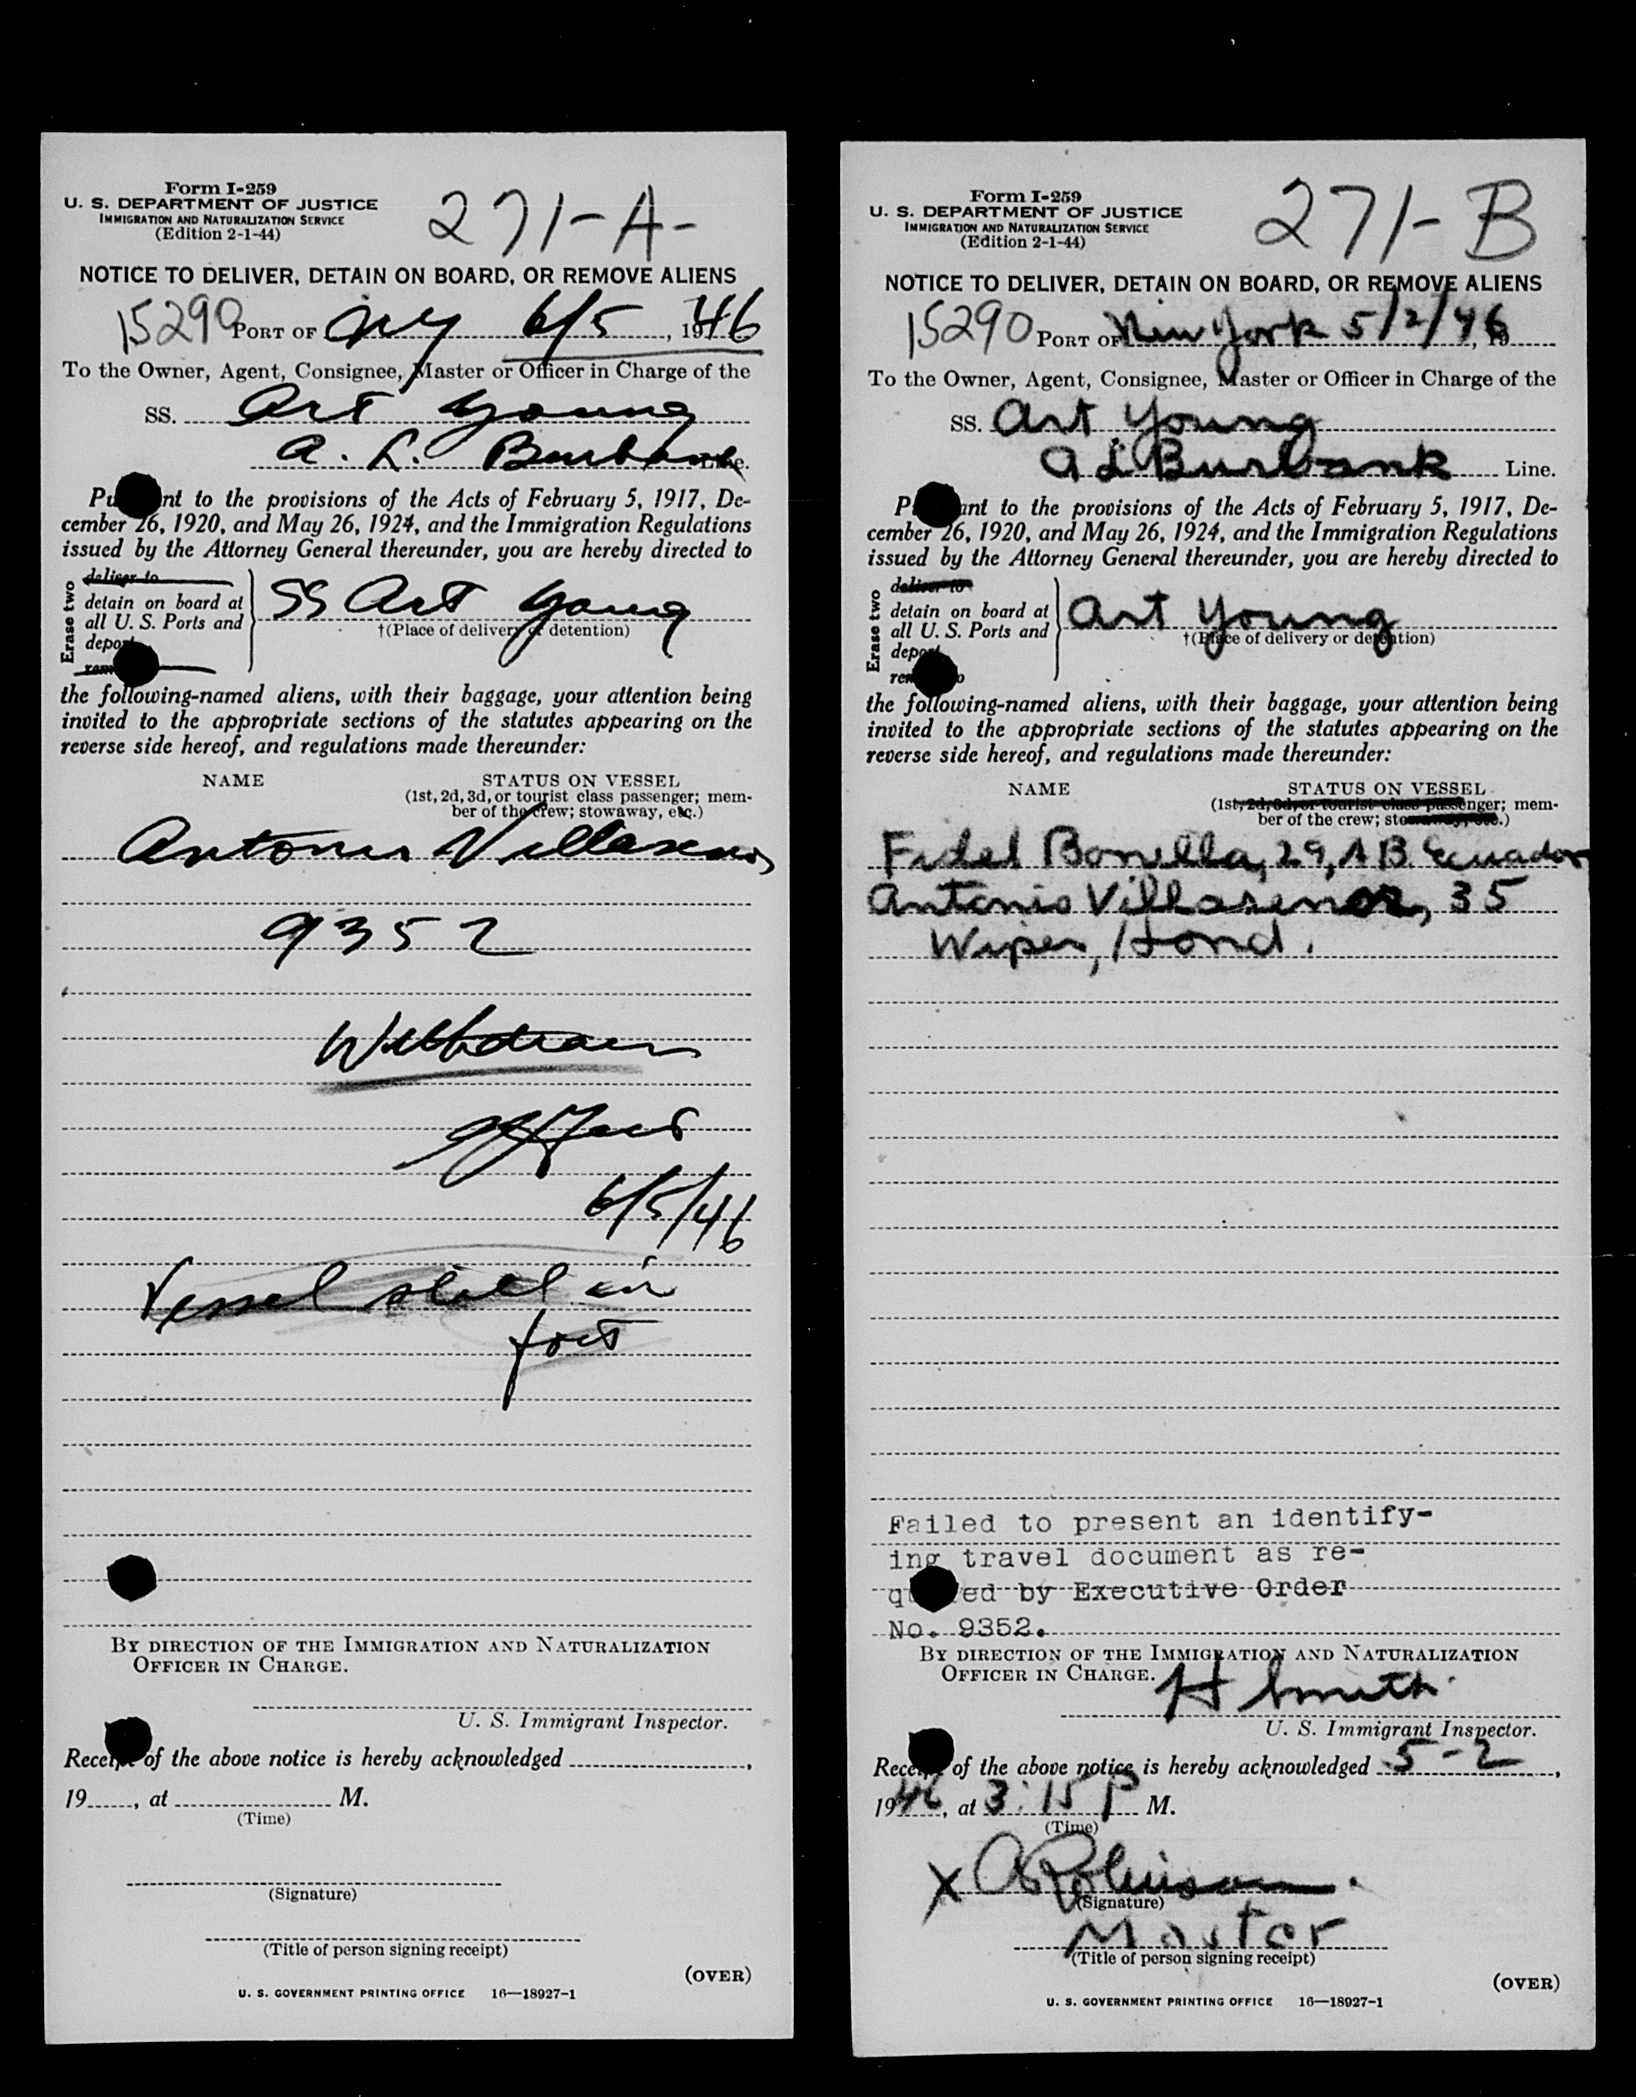 Form I-259
U. S. DEPARTMENT OF JUSTICE
IMMIGRATION AND NATURALIZATION SERVICE
(Edition 2-1-44)
271-A-
NOTICE TO DELIVER, DETAIN ON BOARD, OR REMOVE ALIENS
15290 PORT OF NY 6/5, 1946
To the Owner, Agent, Consignee, Master or Officer in Charge of the
SS. Art Young
A. L. Burbank Line.
Pu nt to the provisions of the Acts of February 5, 1917, De-
cember 26, 1920, and May 26, 1924, and the Immigration Regulations
issued by the Attorney General thereunder, you are hereby directed to
Erase two
deliver to
detain on board at
all U. S. Ports and
depo
rem
SS Art Young
†(Place of delivery or detention)
the following-named aliens, with their baggage, your attention being
invited to the appropriate sections of the statutes appearing on the
reverse side hereof, and regulations made thereunder:
NAME STATUS ON VESSEL
(1st, 2d, 3d, or tourist class passenger; mem-
ber of the crew; stowaway, etc.)
Antonio Villasenor
9352
Withdrawn
6/5/46
Vessel still in
port
BY DIRECTION OF THE IMMIGRATION AND NATURALIZATION
OFFICER IN CHARGE.
U. S. Immigrant Inspector.
Receipt of the above notice is hereby acknowledged ,
19 , at M.
(Time)
(Signature)
(Title of person signing receipt)
(OVER)
U. S. GOVERNMENT PRINTING OFFICE 16—18927-1
Form I-259
U. S. DEPARTMENT OF JUSTICE
IMMIGRATION AND NATURALIZATION SERVICE
(Edition 2-1-44)
271-B
NOTICE TO DELIVER, DETAIN ON BOARD, OR REMOVE ALIENS
15290 PORT OF New York 5/2/46, 19
To the Owner, Agent, Consignee, Master or Officer in Charge of the
SS. Art Young
A L Burbank Line.
P ant to the provisions of the Acts of February 5, 1917, De-
cember 26, 1920, and May 26, 1924, and the Immigration Regulations
issued by the Attorney General thereunder, you are hereby directed to
Erase two
deliver to
detain on board at
all U. S. Ports and
depo
re o
Art Young
†(Place of delivery or detention)
the following-named aliens, with their baggage, your attention being
invited to the appropriate sections of the statutes appearing on the
reverse side hereof, and regulations made thereunder:
NAME STATUS ON VESSEL
(1st, 2d, 3d, or tourist class passenger; mem-
ber of the crew; stowaway, etc.)
Fidel Bonilla, 29, AB Ecuador
Antonio Villasenor, 35
Wiper, Hond.
Failed to present an identify-
ing travel document as re-
q ed by Executive Order
No. 9352.
BY DIRECTION OF THE IMMIGRATION AND NATURALIZATION
OFFICER IN CHARGE.
H Smith
U. S. Immigrant Inspector.
Receipt of the above notice is hereby acknowledged 5-2,
1946, at 3:15 P M.
(Time)
X A Robinson.
(Signature)
Master
(Title of person signing receipt)
(OVER)
U. S. GOVERNMENT PRINTING OFFICE 16—18927-1